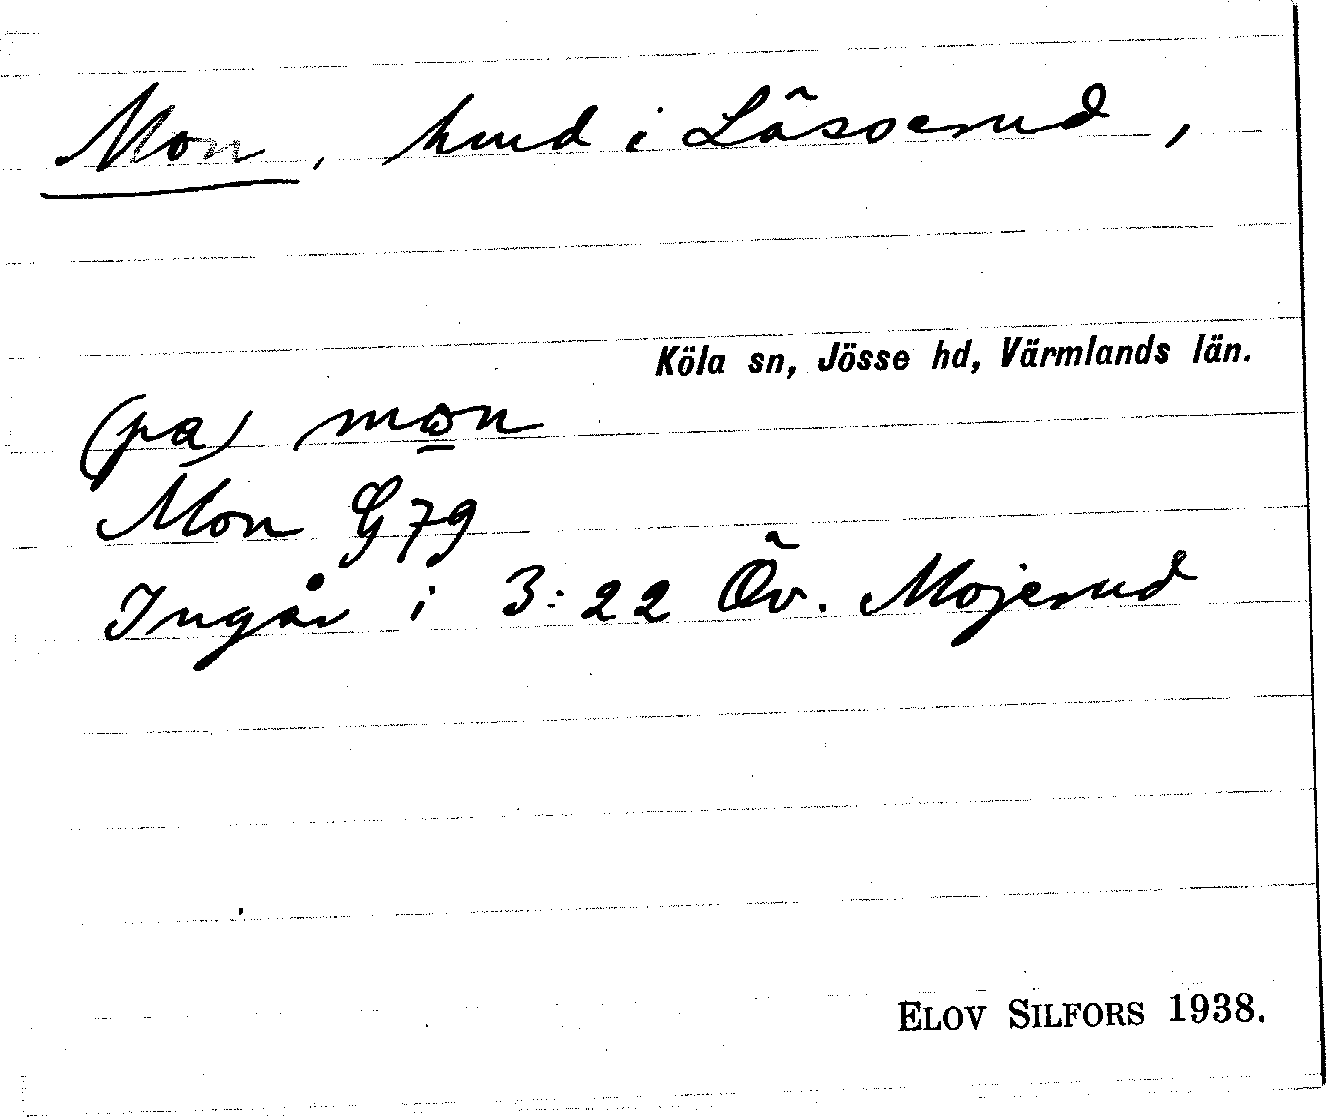 Mon, hmd i Lässerud,
Köla sn, Jösse hd, Värmlands län.
(pa) mon
Mon G79
Ingår i 3:22 Öv. Mojerud
ELOV SILFORS 1938.